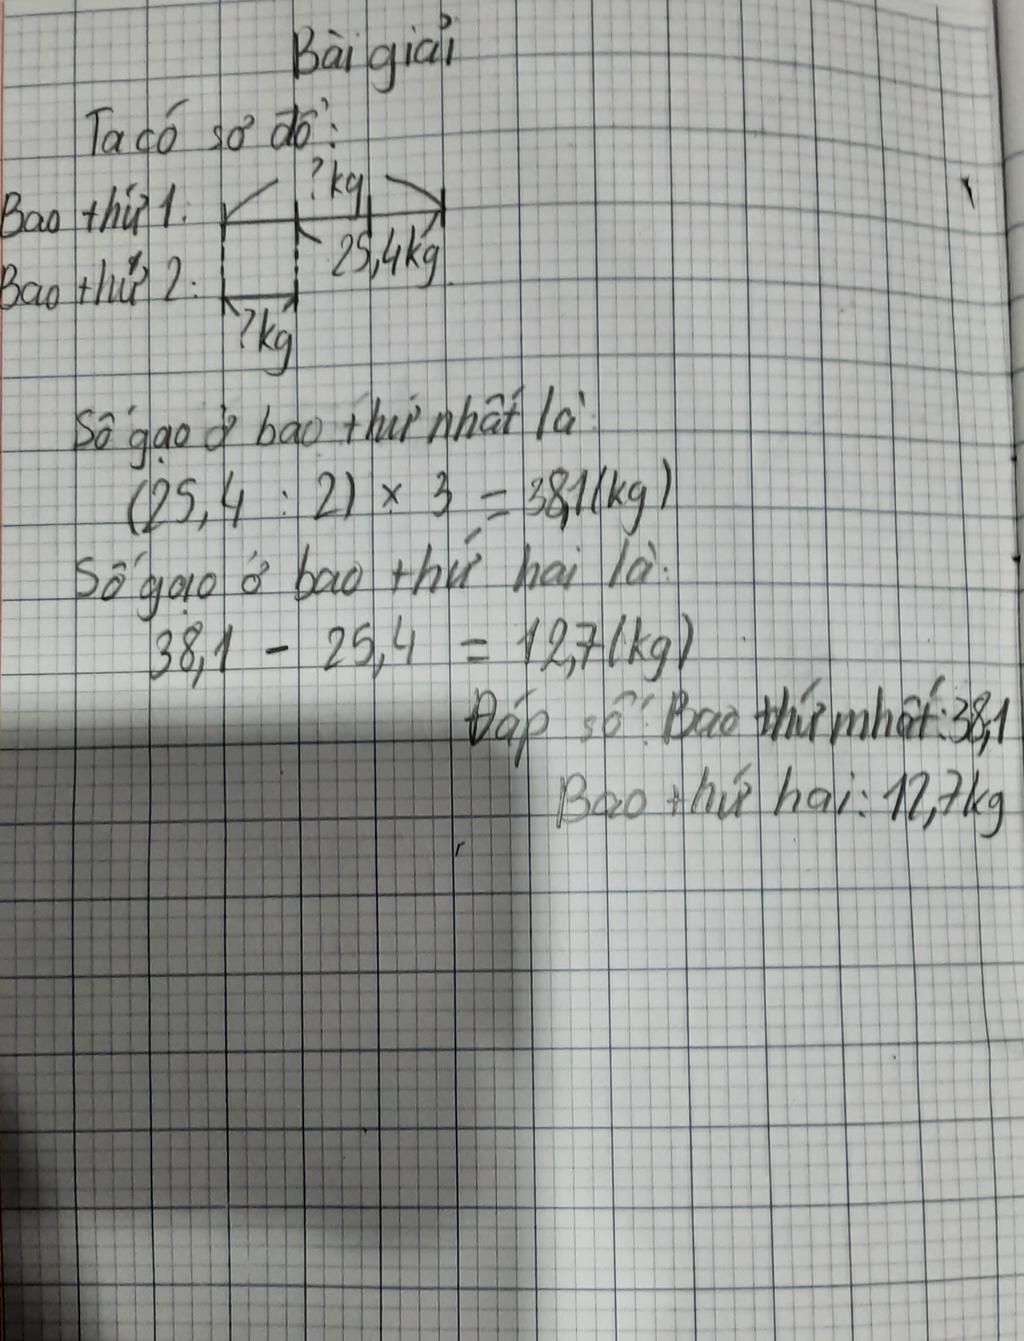 Bài giải
Ta có sơ đồ:
?kg
Bao thứ 1:
25,4kg
Bao thứ 2:
?kg
Số gạo ở bao thứ nhất là
(25,4 : 2) × 3 = 38,1(kg)
Số gạo ở bao thứ hai là:
38,1 - 25,4 = 12,7(kg)
Đáp số: Bao thứ nhất: 38,1
Bao thứ hai: 12,7kg